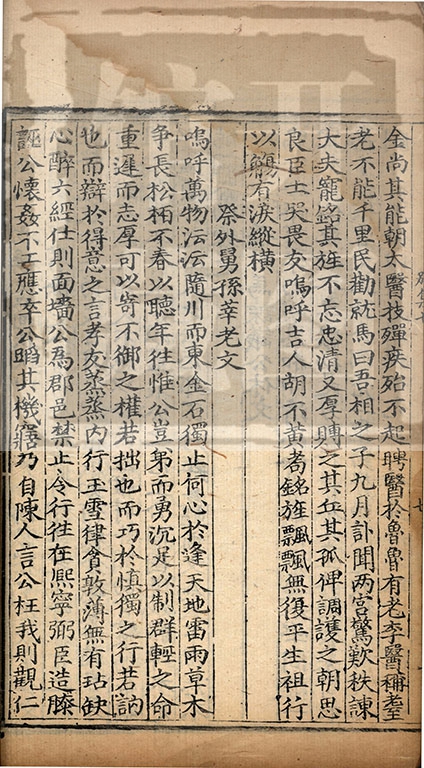 金尚其能朝太醫技殫疾殆不起聘醫於魯魯有老李醫稱耋
老不能千里民勸就馬曰吾相之子九月訃聞两宫驚歎秩諫
大夫寵銘其旌不忘忠清又厚賻之其丘其孤俾調護之朝思
良臣士哭畏友嗚呼吉人胡不黄耇銘旌飄飄無復平生祖行
以觴有淚縱横
祭外舅孫莘老文
嗚呼萬物沄沄隨川而東金石獨止何心於逢天地雷雨草木
争長松柏不春以聽年徃惟公豈弟而勇沉足以制群輕之命
重遲而志厚可以寄不御之權若拙也而巧於慎獨之行若訥
也而辯於得意之言孝友蒸蒸内行玉雪律貪敦薄無有玷缺
心醉六經仕則面墻公為郡邑禁止令行徃在熙寧弼臣造膝
誣公懷姦不工應卒公蹈其機寤乃自陳人言公枉我則觀仁